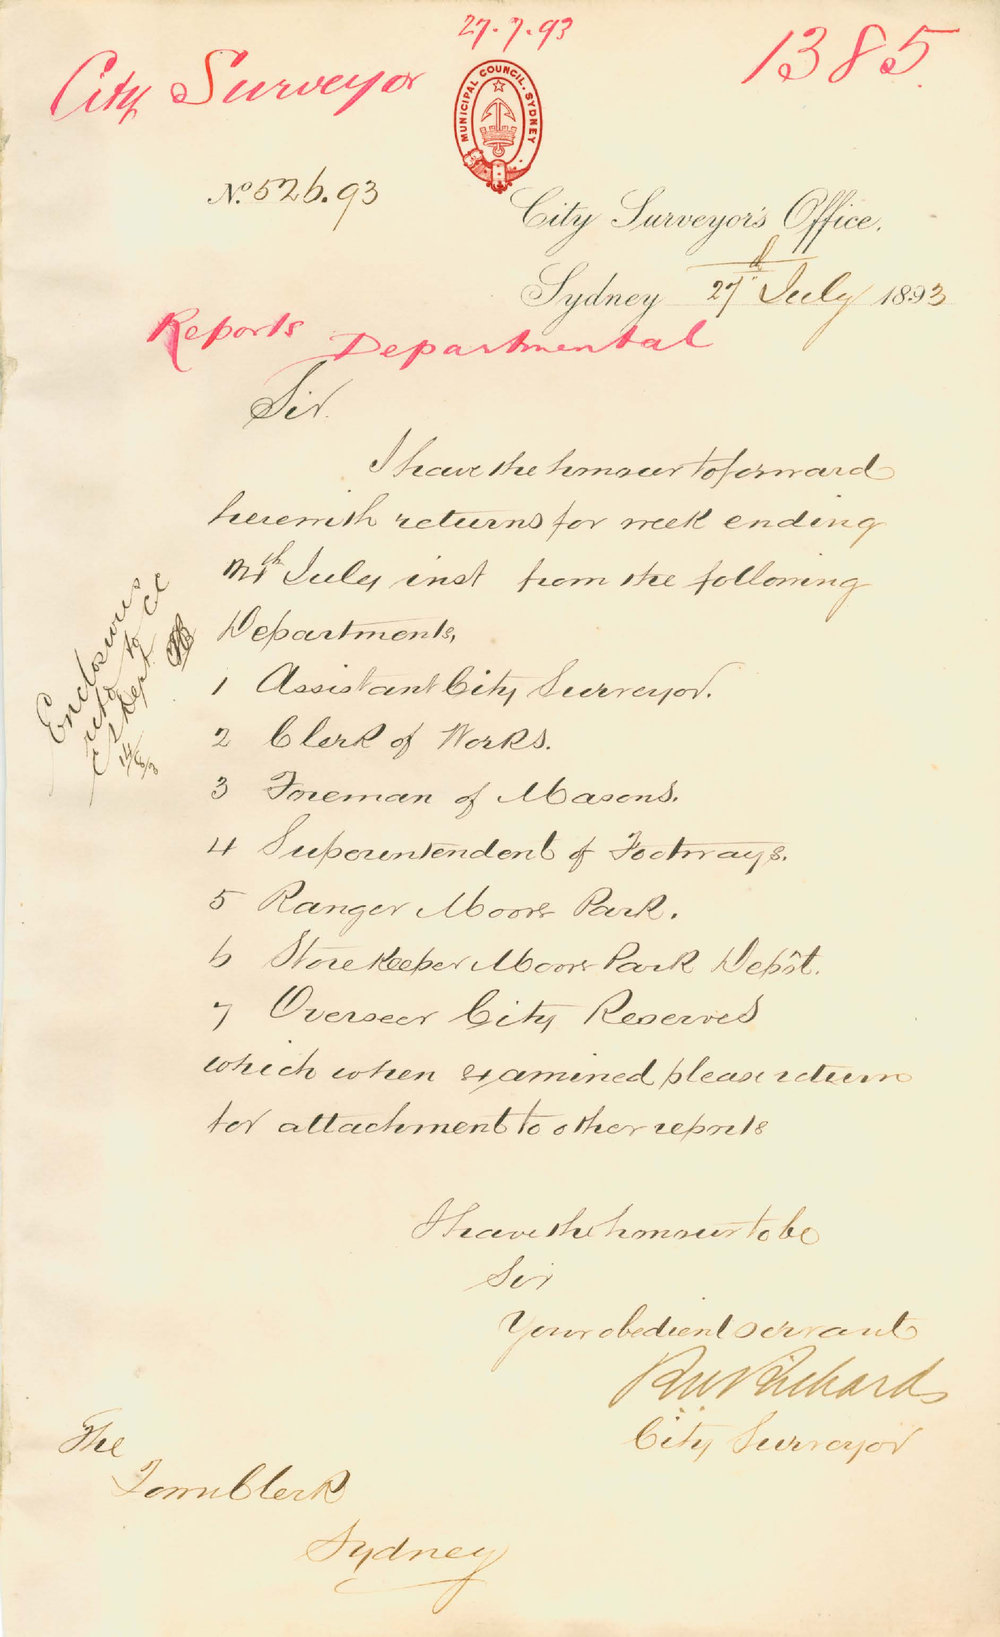 27.7.93
City Surveyor
1385
MUNICIPAL COUNCIL. SYDNEY
No. 526.93
City Surveyor's Office.
Sydney 27" July 1893
Reports Departmental
Sir.
I have the honour to forward
herewith returns for week ending
July inst from the following
Departments,
1 Assistant City Surveyor.
2 Clerk of Works.
3 Foreman of Masons.
4 Superintendent of Footways.
5 Ranger Moore Park.
6 Storekeeper Moore Park Depôt.
7 Overseer City Reserves
which when examined please return
for attachment to other reports
I have the honour to be
Sir
Your obedient servant
RW Richards
City Surveyor
The
Town Clerk
Sydney
Enclosures
retd to
CS Dept
14/8/3